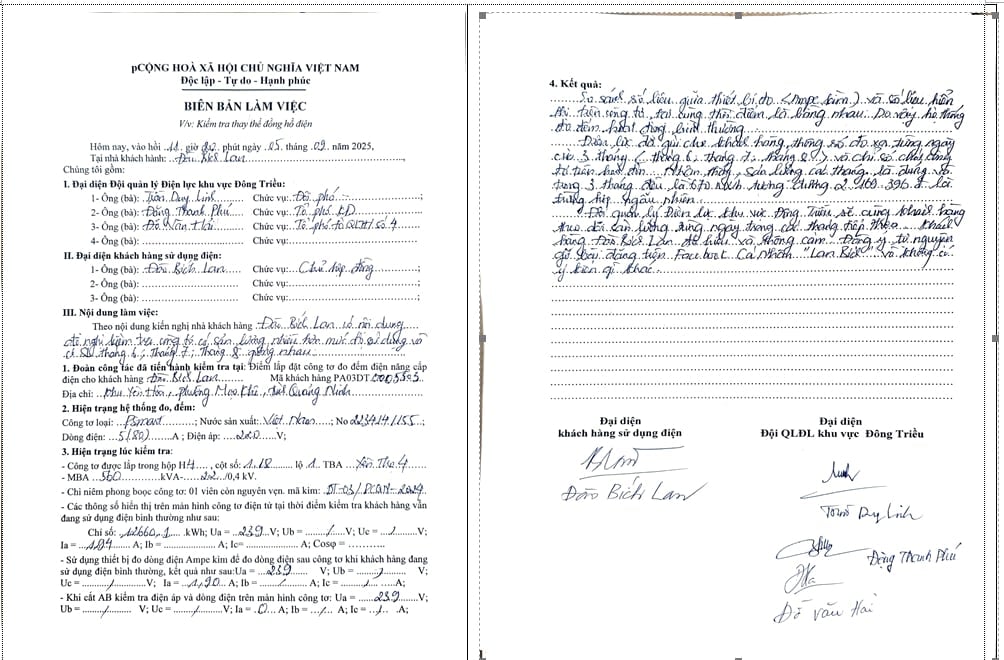 pCỘNG HOÀ XÃ HỘI CHỦ NGHĨA VIỆT NAM
Độc lập - Tự do - Hạnh phúc
BIÊN BẢN LÀM VIỆC
V/v: Kiểm tra thay thế đồng hồ điện
Hôm nay, vào hồi 11 giờ phút ngày 05 tháng 09 năm 2025,
Tại nhà khách hàng: Đào Bích Lan
Chúng tôi gồm:
I. Đại diện Đội quản lý Điện lực khu vực Đông Triều:
1- Ông (bà): Trần Duy Linh Chức vụ: Đội phó ;
2- Ông (bà): Đồng Thanh Phú Chức vụ: Tổ phó KD ;
3- Ông (bà): Đỗ Văn Hải Chức vụ: Tổ phó tổ QLKH số 4
4- Ông (bà): Chức vụ:
II. Đại diện khách hàng sử dụng điện:
1- Ông (bà): Đào Bích Lan Chức vụ: Chủ hợp đồng ;
2- Ông (bà): Chức vụ: ;
3- Ông (bà): Chức vụ:
III. Nội dung làm việc:
Theo nội dung kiến nghị nhà khách hàng Đào Bích Lan có nội dung
đề nghị kiểm tra công tơ có sản lượng nhiều hơn mức độ sử dụng và
có SL tháng 6; Tháng 7; Tháng 8 giống nhau
1. Đoàn công tác đã tiến hành kiểm tra tại: Điểm lắp đặt công tơ đo đếm điện năng cấp
điện cho khách hàng Đào Bích Lan Mã khách hàng PA03DT
Địa chỉ: Khu Yên Hòa, phường Mạo Khê, Tỉnh Quảng Ninh
2. Hiện trạng hệ thống đo, đếm:
Công tơ loại: Psmart ; Nước sản xuất: Việt Nam ; No 223414155 ;
Dòng điện: 5(80) A ; Điện áp: 220 V;
3. Hiện trạng lúc kiểm tra:
- Công tơ được lắp trong hộp H4 , cột số: 1.18 lộ 1 TBA Yên Thọ 4
- MBA 560 kVA- 22 /0,4 kV.
- Chì niêm phong booc công tơ: 01 viên còn nguyên vẹn. mã kìm: ĐT-03/PCQN-2024
- Các thông số hiển thị trên màn hình công tơ điện tử tại thời điểm kiểm tra khách hàng vẫn
đang sử dụng điện bình thường như sau:
Chỉ số: 12660,1 kWh; Ua = 239 V; Ub = / V; Uc = / V;
Ia = 1,84 A; Ib = A; Ic= A; Cosφ =
- Sử dụng thiết bị đo dòng điện Ampe kìm để đo dòng điện sau công tơ khi khách hàng đang
sử dụng điện bình thường, kết quả như sau:Ua = 239 V; Ub = / V;
Uc = / V; Ia = 1,90 A; Ib = / A; Ic = / A;
- Khi cắt AB kiểm tra điện áp và dòng điện trên màn hình công tơ: Ua = 239 V;
Ub = / V; Uc = / V; Ia = 0 A; Ib = / A; Ic = / A;
4. Kết quả:
So sánh số liệu giữa thiết bị đo (Ampe kìm) và số liệu hiển
thị trên công tơ tại cùng thời điểm là bằng nhau. Do vậy hệ thống
đo đếm hoạt động bình thường
Điện lực đã gửi cho khách hàng thông số đo xa từng ngày
của 3 tháng (tháng 6; tháng 7; tháng 8) và chỉ số công tơ
từ trên hóa đơn. Nhận thấy, sản lượng các tháng là đúng và
trong 3 tháng đều là 670 kWh tương đương 2.960.396 đ là
trường hợp ngẫu nhiên.
Đội quản lý Điện lực khu vực Đông Triều sẽ cùng khách hàng
theo dõi sản lượng từng ngày trong các tháng tiếp theo. Khách
hàng Đào Bích Lan đã hiểu và thông cảm. Đồng ý tự nguyện
gỡ bài đăng trên Facebook Cá Nhân "Lan Bích" và không có
ý kiến gì khác.
Đại diện
khách hàng sử dụng điện
Đào Bích Lan
Đại diện
Đội QLĐL khu vực Đông Triều
Trần Duy Linh
Đồng Thanh Phú
Đỗ Văn Hải